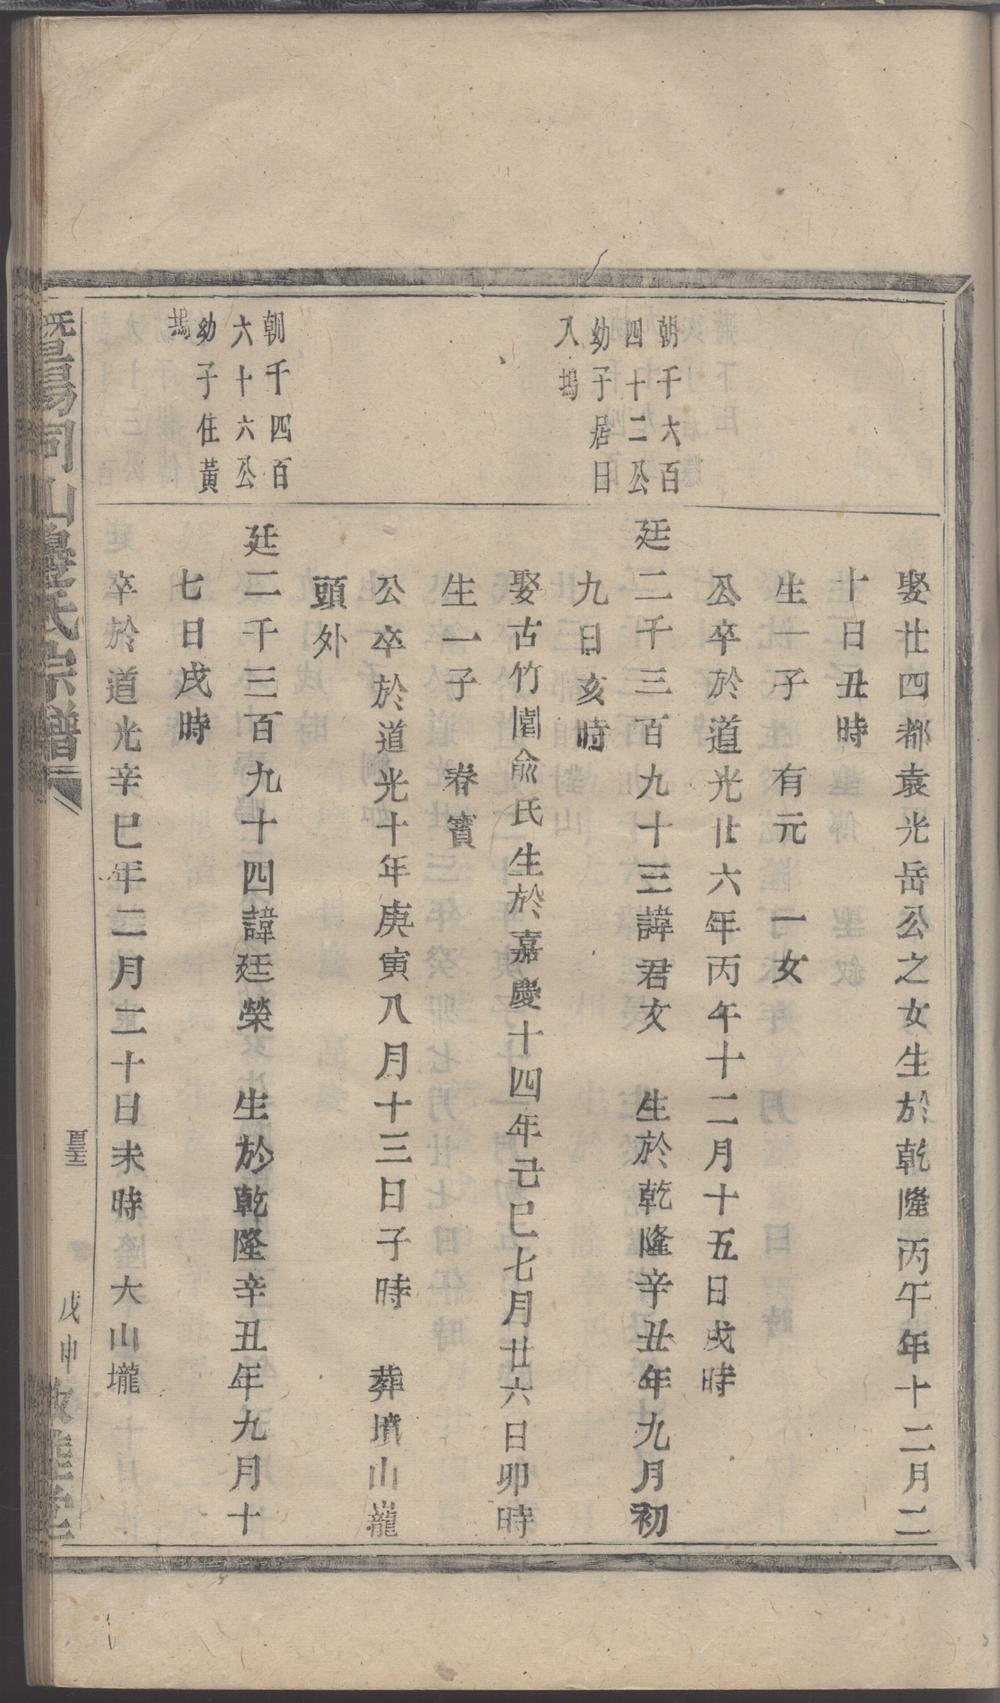 娶廿四都袁光岳公之女生於乾隆丙午年十二月二
十日丑時
生一子　有元　一女
公卒於道光廿六年丙午十二月十五日戌時
朝千六百
四十二公
幼子居日
入塢
廷二千三百九十三諱君文　生於乾隆辛丑年九月初
九日亥時
娶古竹園俞氏生於嘉慶十四年己巳七月廿六日卯時
生一子　春寳
公卒於道光十年庚寅八月十三日子時　葬墳山巃
頭外
朝千四百
六十六公
幼子住黃
塢
廷二千三百九十四諱廷榮　生於乾隆辛丑年九月十
七日戌時
卒於道光辛巳年二月二十日未時大山壠
暨陽同山邊氏宗譜
戊申